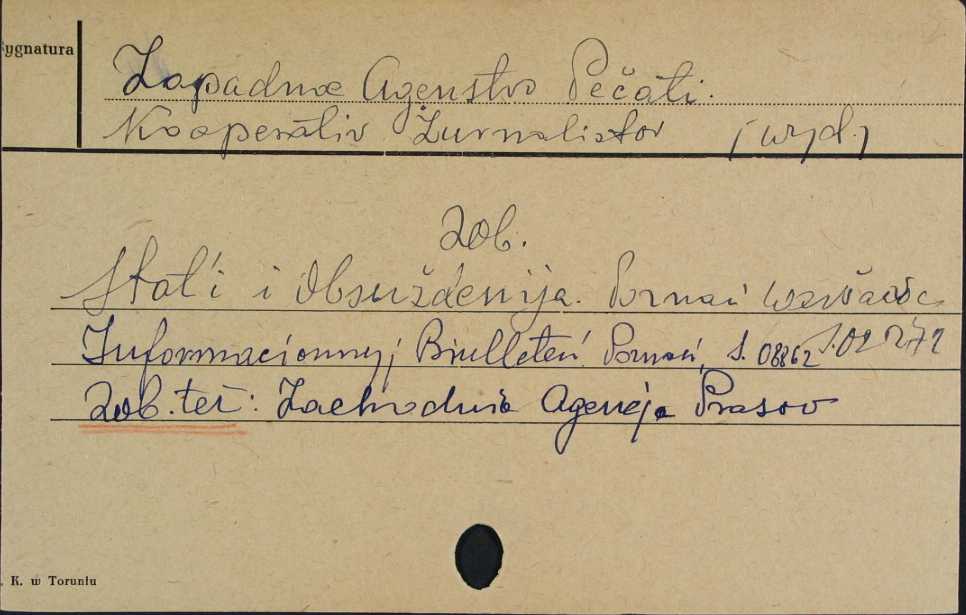 Sygnatura
Zapadnoe Agenstvo Pečati.
Kooperativ Žurnalistov (wyd.)
Zob.
Stat'i i Obsuždenija. Poznań Warszawa
Informacionnyj Biulleten'. Poznań, S. 08862 S.02272
Zob. też: Zachodnia Agencja Prasow
. K. w Toruniu